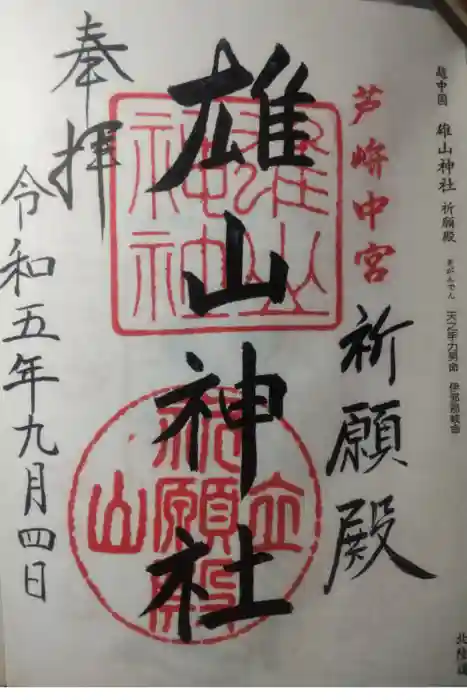 越中国 雄山神社 祈願殿 きがんでん 天之手力男命 伊邪那岐命
芦峅中宮
祈願殿
雄山神社
雄山
神社
立山
祈願殿
奉拝
令和五年九月四日